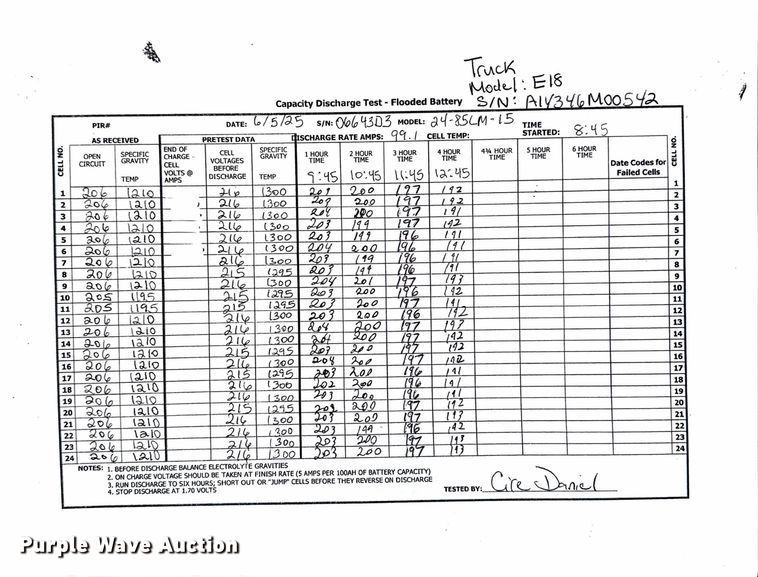 Truck
Model: E18
S/N: A14346M00542
Capacity Discharge Test - Flooded Battery
PIR#
DATE: 6/5/25 S/N: 06643D3 MODEL: 24-85LM-15 TIME STARTED: 8:45
AS RECEIVED PRETEST DATA DISCHARGE RATE AMPS: 99.1 CELL TEMP:
CELL NO. OPEN CIRCUIT SPECIFIC GRAVITY TEMP END OF CHARGE - CELL VOLTS @ AMPS CELL VOLTAGES BEFORE DISCHARGE SPECIFIC GRAVITY TEMP 1 HOUR TIME 2 HOUR TIME 3 HOUR TIME 4 HOUR TIME 4¾ HOUR TIME 5 HOUR TIME 6 HOUR TIME Date Codes for Failed Cells CELL NO.
9:45 10:45 11:45 12:45
1 206 1210 216 1300 200 197 192 1
2 206 1210 216 1300 200 197 192 2
3 206 1210 216 1300 204 200 197 191 3
4 206 1210 216 1300 203 199 197 192 4
5 206 1210 216 1300 203 199 196 191 5
6 206 1210 216 1300 204 200 196 191 6
7 206 1210 216 1300 203 199 196 191 7
8 206 1210 215 1295 203 199 196 191 8
9 206 1210 216 1300 204 201 197 193 9
10 205 1195 215 1295 203 200 196 192 10
11 205 1195 215 1295 203 200 197 191 11
12 206 1210 216 1300 203 200 196 192 12
13 206 1210 216 1300 204 200 197 193 13
14 206 1210 216 1300 204 200 197 192 14
15 206 1210 215 1295 203 200 197 192 15
16 206 1210 216 1300 204 200 197 192 16
17 206 1210 215 1295 203 200 196 191 17
18 206 1210 216 1300 202 200 196 191 18
19 206 1210 216 1300 203 200 196 191 19
20 206 1210 215 1295 203 200 197 192 20
21 206 1210 216 1300 203 200 197 193 21
22 206 1210 216 1300 203 199 196 192 22
23 206 1210 216 1300 203 200 197 193 23
24 206 1210 216 1300 203 200 197 193 24
NOTES: 1. BEFORE DISCHARGE BALANCE ELECTROLYTE GRAVITIES
2. ON CHARGE VOLTAGE SHOULD BE TAKEN AT FINISH RATE (5 AMPS PER 100AH OF BATTERY CAPACITY)
3. RUN DISCHARGE TO SIX HOURS; SHORT OUT OR "JUMP" CELLS BEFORE THEY REVERSE ON DISCHARGE
4. STOP DISCHARGE AT 1.70 VOLTS
TESTED BY: Cire Daniel
Purple Wave Auction